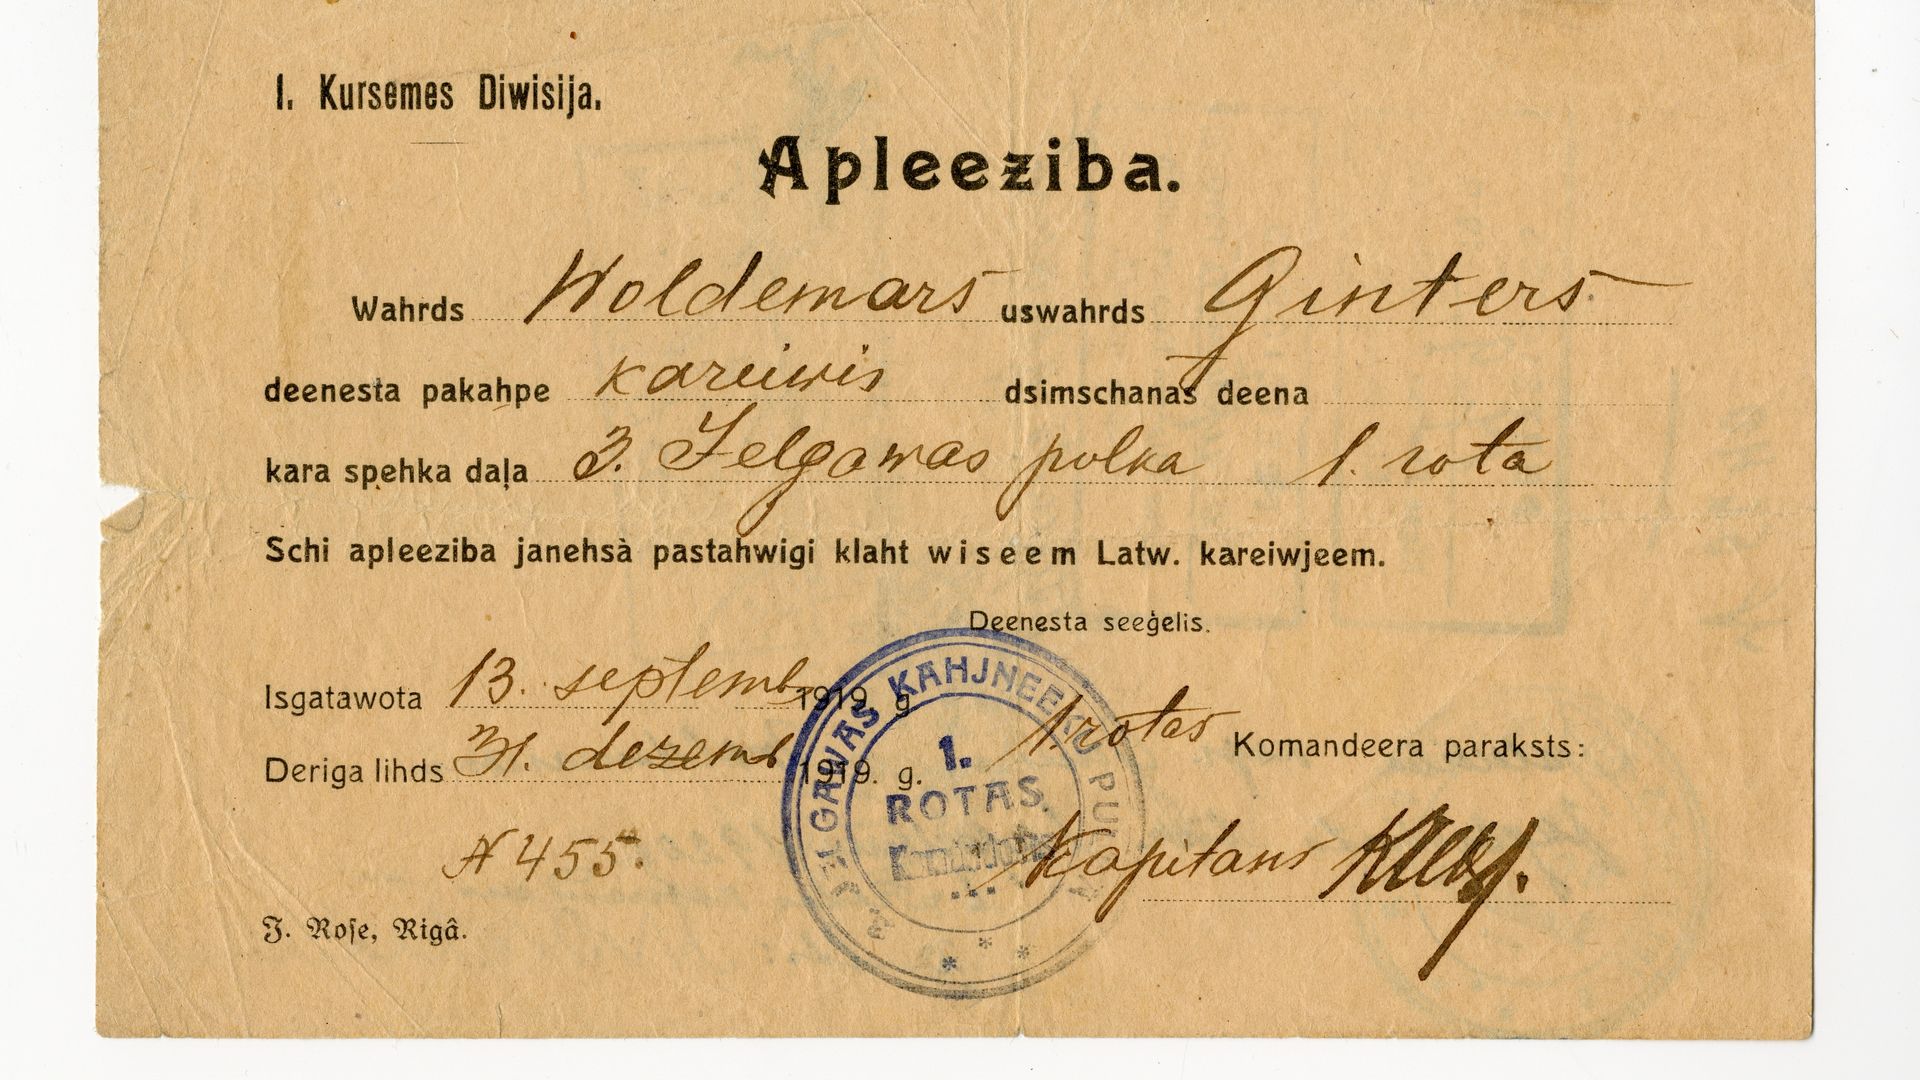 I. Kursemes Diwisija.
Apleeziba.
Wahrds Woldemars uswahrds Ginters
deenesta pakahpe kareiwis dsimschanas deena
kara spehka daļa 3. Jelgawas pulka 1. rota
Schi apleeziba janehsà pastahwigi klaht wiseem Latw. kareiwjeem.
Deenesta seeģelis.
Isgatawota 13. septemb 1919. g.
Deriga lihds 31. dezemb 1919. g.
1. rotas Komandeera paraksts:
3. JELGAWAS KAHJNEEKU
1.
ROTAS
Kapitans
N 455.
J. Roſe, Rigâ.